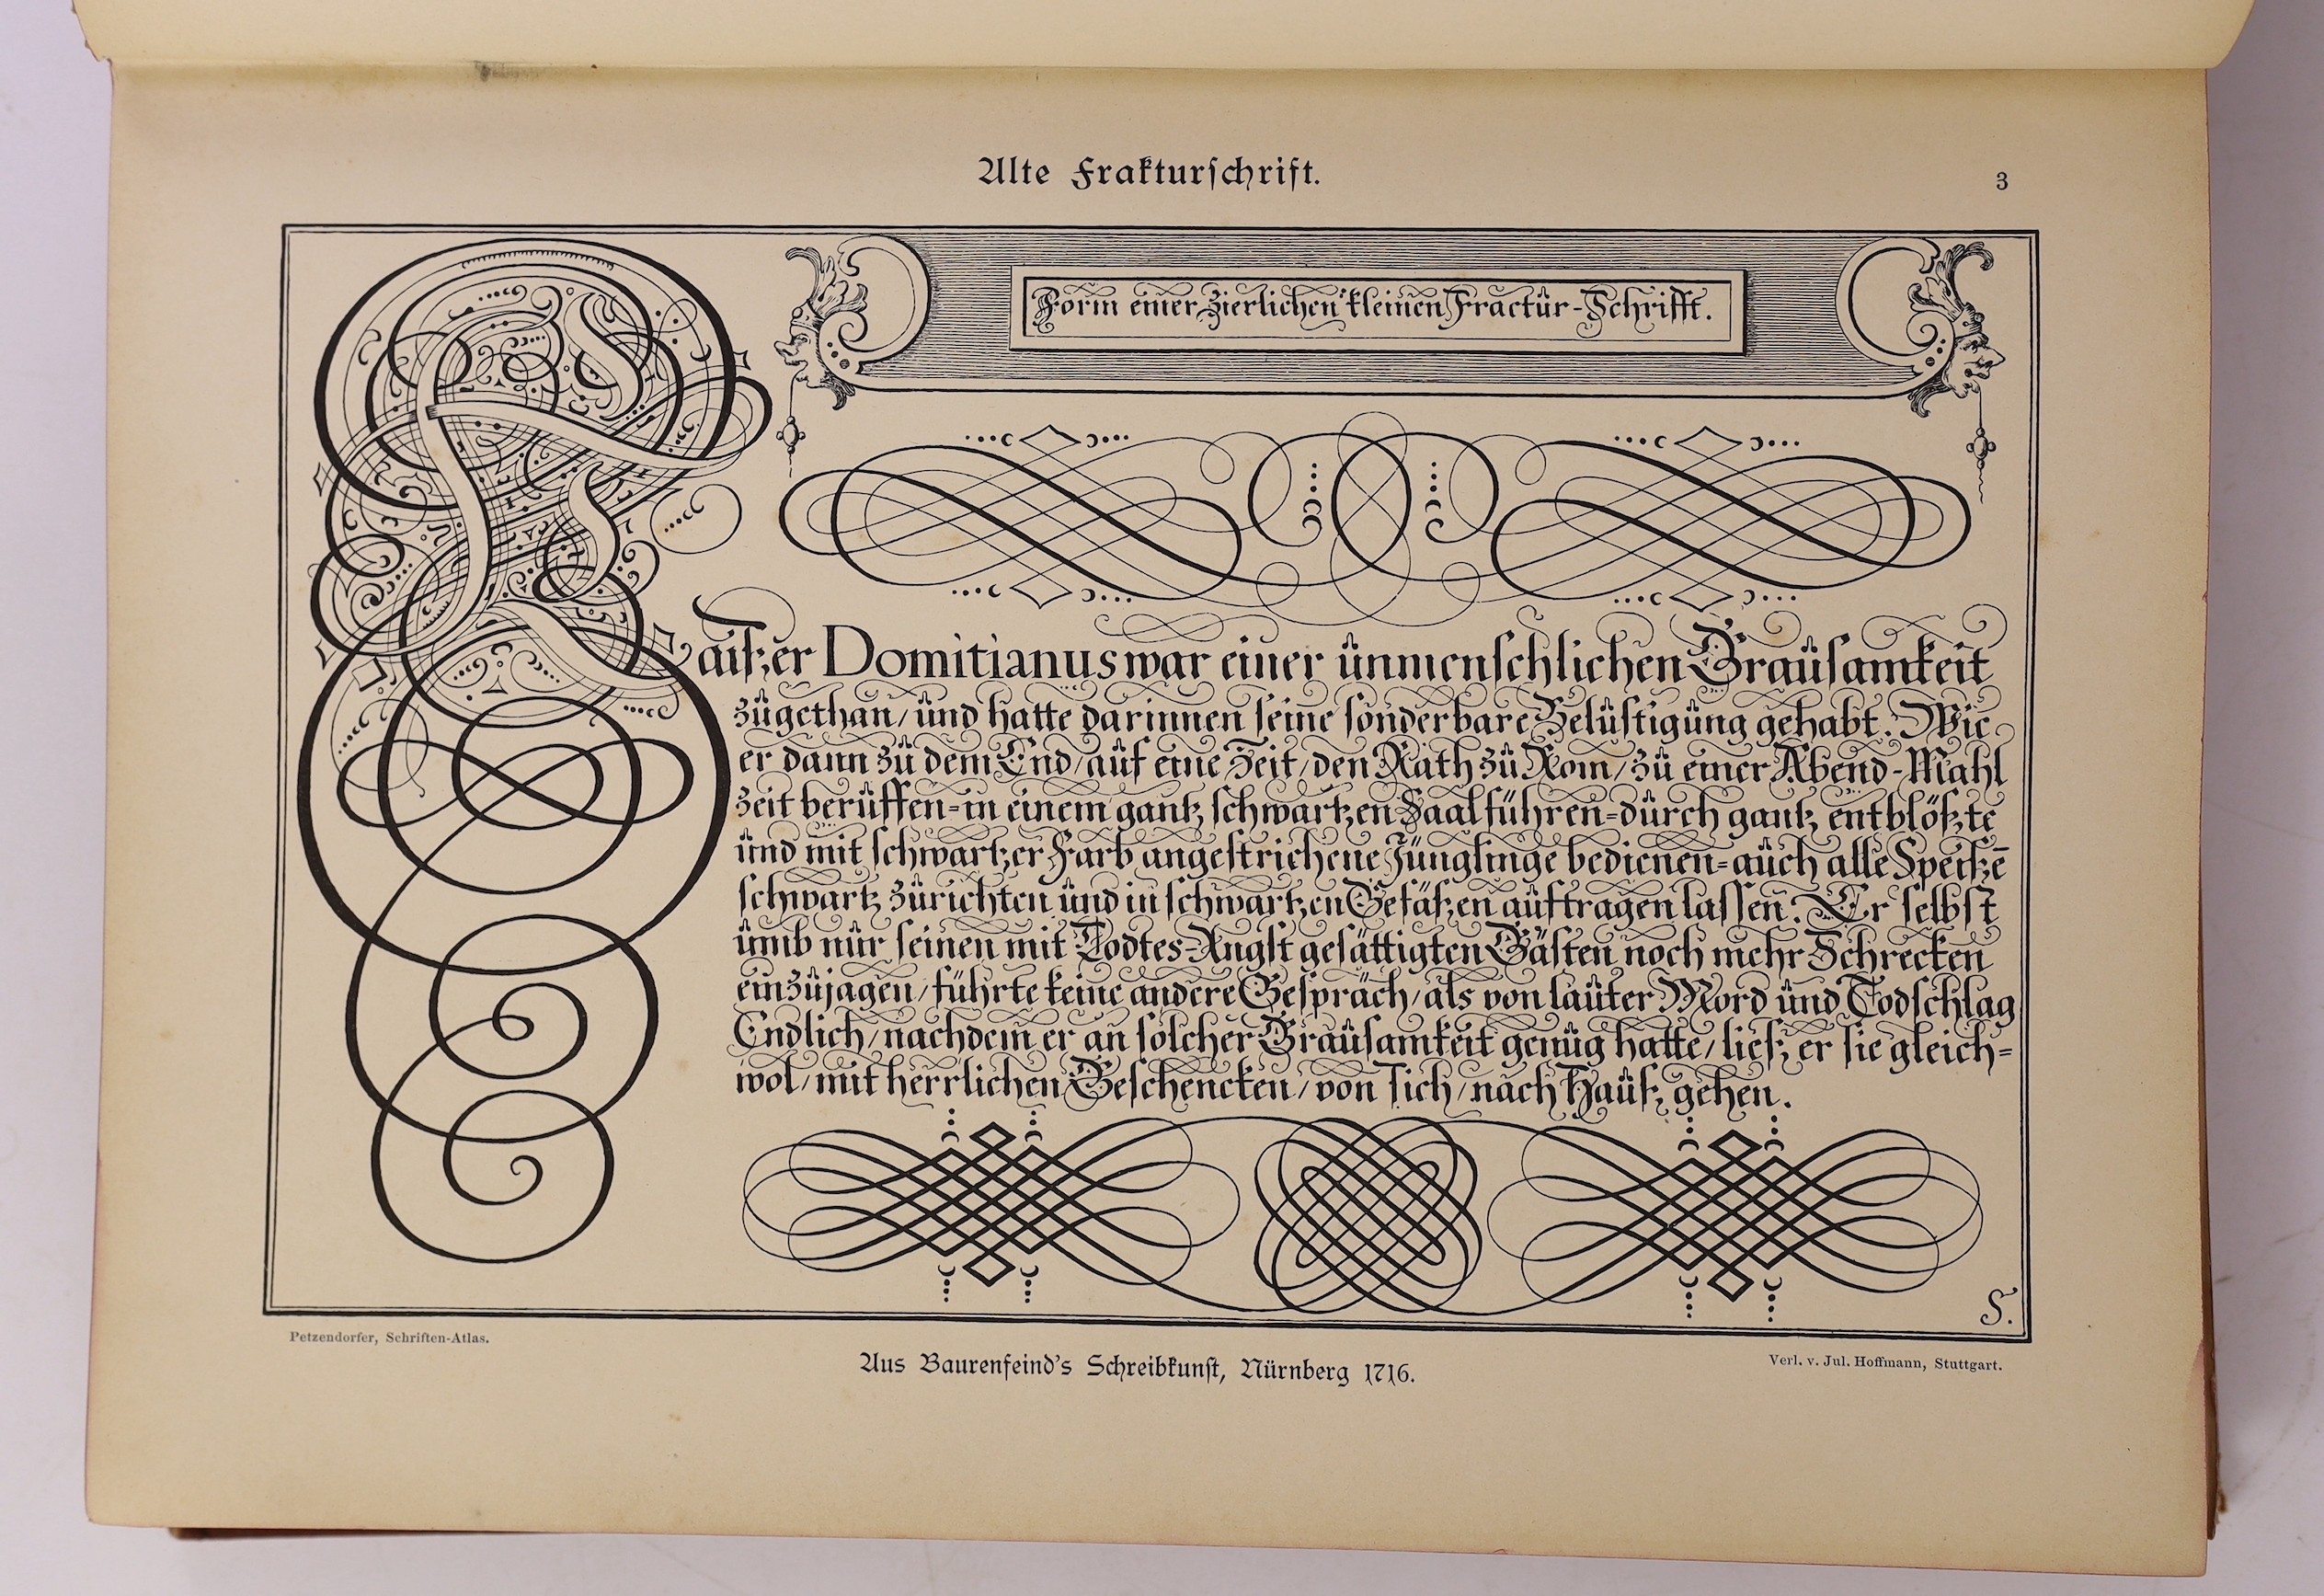 Alte Frakturschrift.
3
Form einer zierlichen kleinen Fractur-Schrifft.
Kaiszer Domitianus war einer ünmenschlichen Graüsamkeit
zügethan/ ünd hatte darinnen seine sonderbare Belüstigüng gehabt. Wie
er dann zü dem End/ aüf eine Zeit/ den Rath zü Rom/ zü einer Abend-Mahl
zeit berüffen=in einem gantz schwartzen Saal führen=dürch gantz entblöszte
ünd mit schwartzer Farb angestrichene Jünglinge bedienen=aüch alle Speiszē
schwartz zürichten ünd in schwartzen Gefäszen aüftragen lassen. Er selbst
ümb nür seinen mit Todtes-Angst gesättigten Gästen noch mehr Schrecken
einzüjagen/ führte keine andere Gespräch/ als von laüter Mord ünd Todschlag
Endlich/ nachdem er an solcher Graüsamkeit genüg hatte/ liesz er sie gleich=
wol/ mit herrlichen Geschencken/ von sich/ nach Haüsz gehen.
S.
Petzendorfer, Schriften-Atlas.
Aus Baurenfeind's Schreibkunst, Nürnberg 1716.
Verl. v. Jul. Hoffmann, Stuttgart.